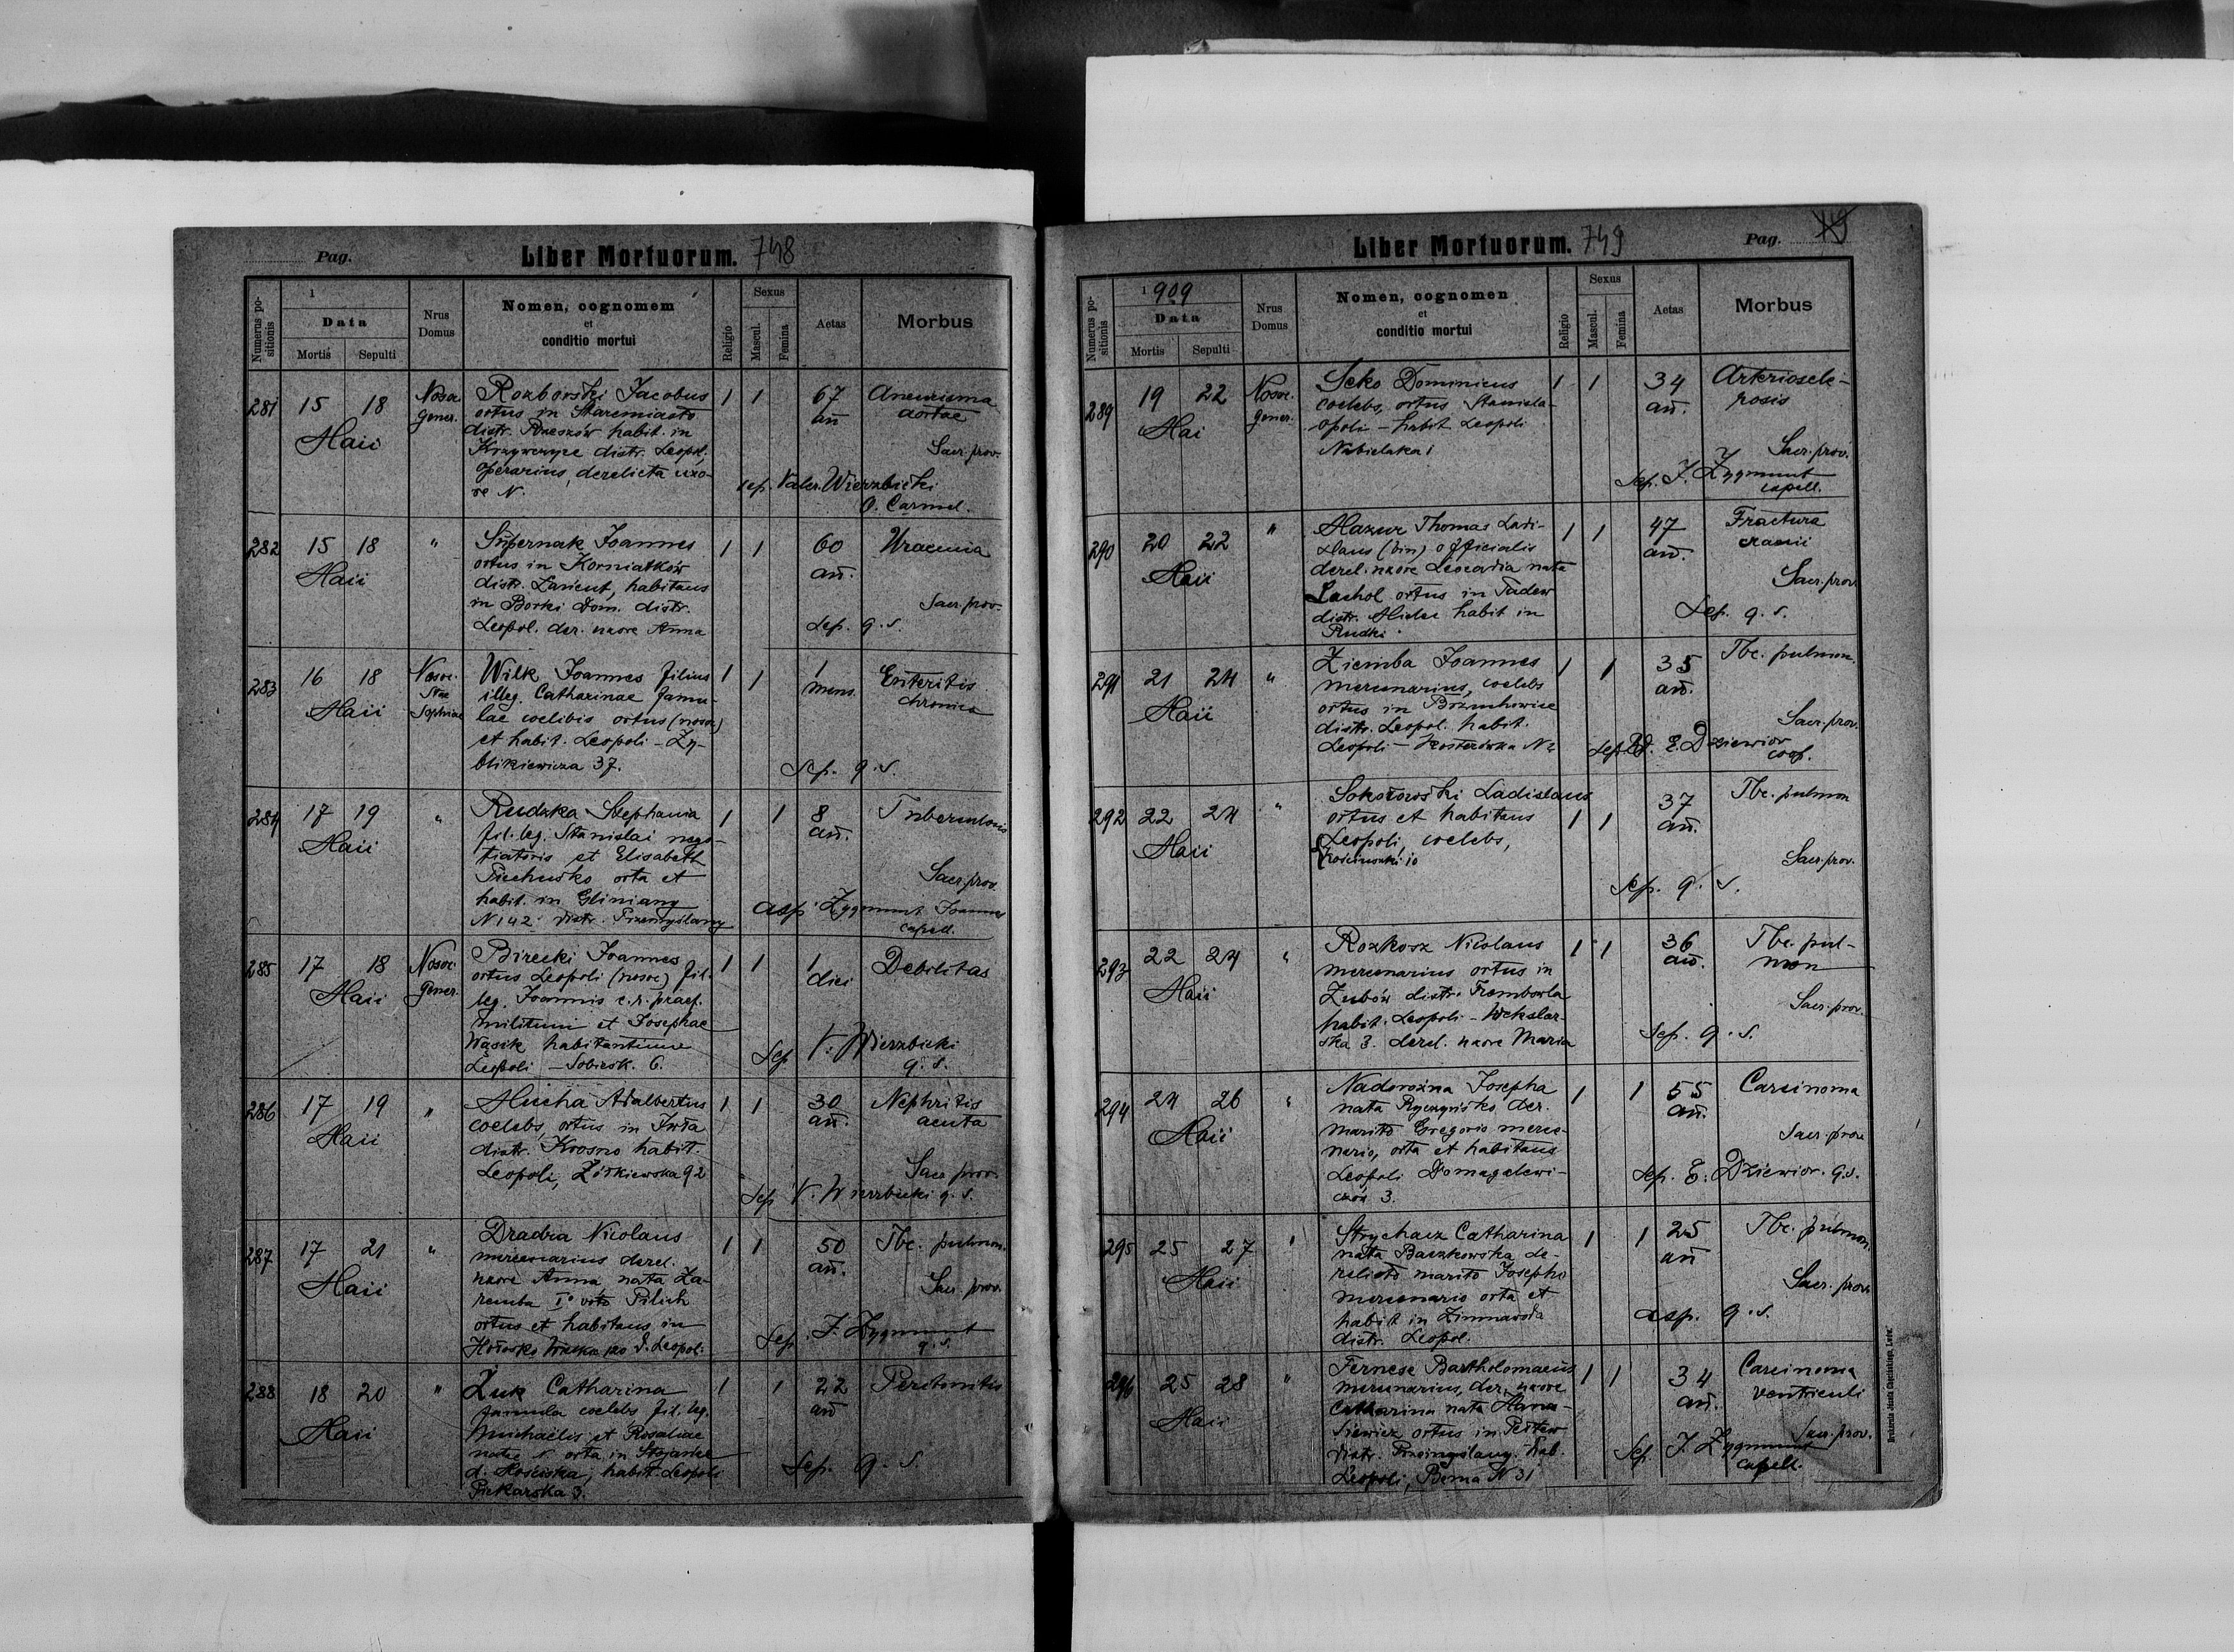 Pag.
Liber Mortuorum. 748
Numerus po-
sitionis
1
Data
Mortis Sepulti
Nrus
Domus
Nomen, cognomem
et
conditio mortui
Religio
Sexus
Mascul.
Femina
Aetas
Morbus
281 15 18 Maii
Nosoc. gener.
Rozborski Jacobus
ortus in Staremiasto
distr. Rzeszów habit. in
Krzywczyce distr. Leopol.
operarius, derelicta uxo-
re N.
1 1
67 an̄
Aneurisma
aortae
Sacr. prov.
sep. Valer. Wierzbicki
O. Carmel.
282 15 18 Maii
"
Supernak Joannes
ortus in Korniaktów
distr. Łańcut, habitans
in Borki Dom. distr.
Leopol. der. uxore Anna
1 1
60 an̄.
Uraemia
Sacr. prov.
Sep. q. s.
283 16 18 Maii
Nosoc. Stae Sophiae
Wilk Joannes filius
illeg. Catharinae famu-
lae coelibis ortus (nosoc)
et habit. Leopoli - Zy-
blikiewicza 37.
1 1
1 mens.
Enteritis
chronica
Sep. q. s.
284 17 19 Maii
"
Rudzka Stephania
fil. leg. Stanislai nego-
tiatoris et Elisabeth
orta et
habit. in Gliniany
N 142 distr. Przemyślany
1 1
8 an̄.
Tuberculosis
Sacr. prov.
asp. Zygmunt Joannes
capell.
285 17 18 Maii
Nosoc. gener.
Birecki Joannes
ortus Leopoli (nosoc) fil.
leg. Joannis c. r. praef.
militum et Josephae
Wąsik habitantium
Leopoli - Sobiesk. 6.
1 1
1 diei
Debilitas
Sep. V. Wierzbicki
q. s.
286 17 19 Maii
"
Mucha Adalbertus
coelebs, ortus in Iwla
distr. Krosno habit.
Leopoli, Żółkiewska 92
1 1
30 an̄.
Nephritis
acuta
Sacr. prov.
Sep. V. Wierzbicki q. s.
287 17 21 Maii
"
Dradra Nicolaus
mercenarius derel.
uxore Anna nata Za-
remba I° voto Pilich
ortus et habitans in
Hołosko Wielkie 120 d. Leopol.
1 1
50 an̄.
Tbc. pulmon.
Sacr. prov.
Sep. J. Zygmunt
q. s.
288 18 20 Maii
"
Żuk Catharina
famula coelebs fil. leg.
Michaëlis et Rosaliae
natae N orta in
d. Mościska, habit. Leopoli
Piekarska 3.
1 1
22 an̄
Peritonitis
Sep. q. s.
Liber Mortuorum. 749
Pag. 79
Numerus po-
sitionis
1909
Data
Mortis Sepulti
Nrus
Domus
Nomen, cognomen
et
conditio mortui
Religio
Sexus
Mascul.
Femina
Aetas
Morbus
289 19 22 Mai
Nosoc. gener.
Seko Dominicus
coelebs, ortus Stanisla-
opoli - habit. Leopoli
Nabielaka 1
1 1
34 an̄.
Arterioscle-
rosis
Sacr. prov.
Sep. J. Zygmunt
capell.
290 20 22 Maii
"
Mazur Thomas Ladi-
slaus (bin) officialis
derel. uxore Leocadia nata
Lachol ortus in Tadew
distr. habit in
Rudki
1 1
47 an̄.
Fractura
cranii
Sacr. prov
Sep. q. s.
291 21 24 Maii
"
Ziemba Joannes
mercenarius, coelebs
ortus in Brzuchowice
distr. Leopol. habit.
Leopoli -
1 1
35 an̄.
Tbc. pulmon.
Sacr. prov.
Sep. E. Dziewior
coop.
292 22 24 Maii
"
Sokołowski Ladislaus
ortus et habitans
Leopoli, coelebs,
Kościuszki 10
1 1
37 an̄.
Tbc. pulmon
Sacr. prov.
Sep. q. s.
293 22 24 Maii
"
Rozkosz Nicolaus
mercenarius ortus in
Zubów distr. Trembowla
habit. Leopoli - Wekslar-
ska 3. derel. uxore Maria
1 1
36 an̄.
Tbc. pul-
mon
Sacr. prov.
Sep. q. s.
294 24 26 Maii
"
Nadorożna Josepha
nata Ryczyńsko, der.
marito Gregorio merce-
nario, orta et habitans
Leopoli Domagalewi-
czów 3.
1 1
55 an̄.
Carcinoma
Sacr. prov
Sep. E. Dziewior. q. s.
295 25 27 Maii
"
Strychacz Catharina
nata Baczkowska de-
relicto marito Josepho
mercenario orta et
habit in Zimnawoda
distr. Leopol.
1 1
25 an̄
Tbc. pulmon.
Sacr. prov.
asp. q. s.
296 25 28 Maii
"
Fernese Bartholomaeus
mercenarius, der. uxore
Catharina nata
ortus in Pełtew
distr. Przemyślany. hab.
Leopoli, Bema N 31
1 1
34 an̄.
Carcinoma
ventriculi
Sacr. prov.
Sep. J. Zygmunt
capell.